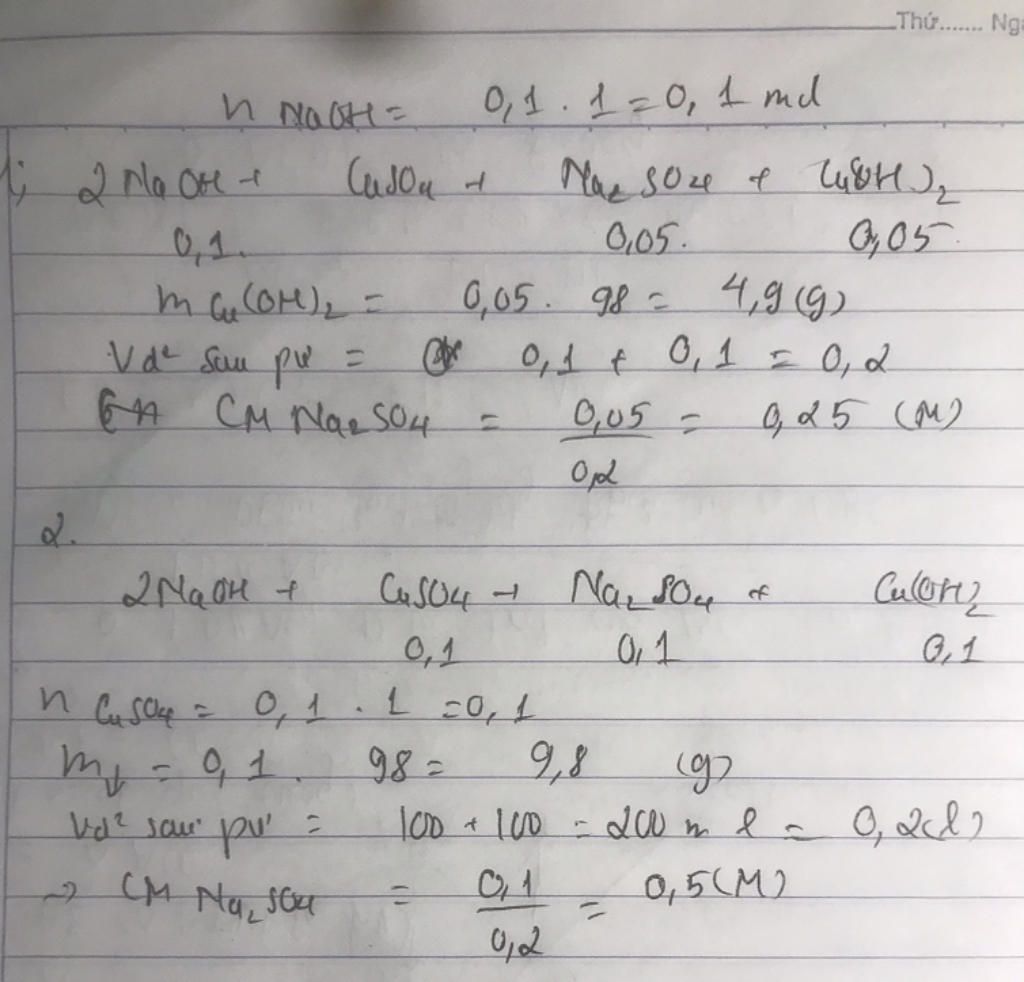 Thứ....... Ng
n NaOH = 0,1 . 1 = 0,1 mol
1; 2NaOH + CuSO4 → Na2SO4 + Cu(OH)2
0,1. 0,05. 0,05.
m Cu(OH)2 = 0,05. 98 = 4,9 (g)
Vd² sau pư = 0,1 + 0,1 = 0,2
CM Na2SO4 = 0,05 = 0,25 (M)
0,2
2.
2NaOH + CuSO4 → Na2SO4 + Cu(OH)2
0,1 0,1 0,1
n CuSO4 = 0,1 . 1 = 0,1
m↓ = 0,1. 98 = 9,8 (g)
Vd² sau pư = 100 + 100 = 200 m l = 0,2(l)
→ CM Na2SO4 = 0,1 = 0,5(M)
0,2